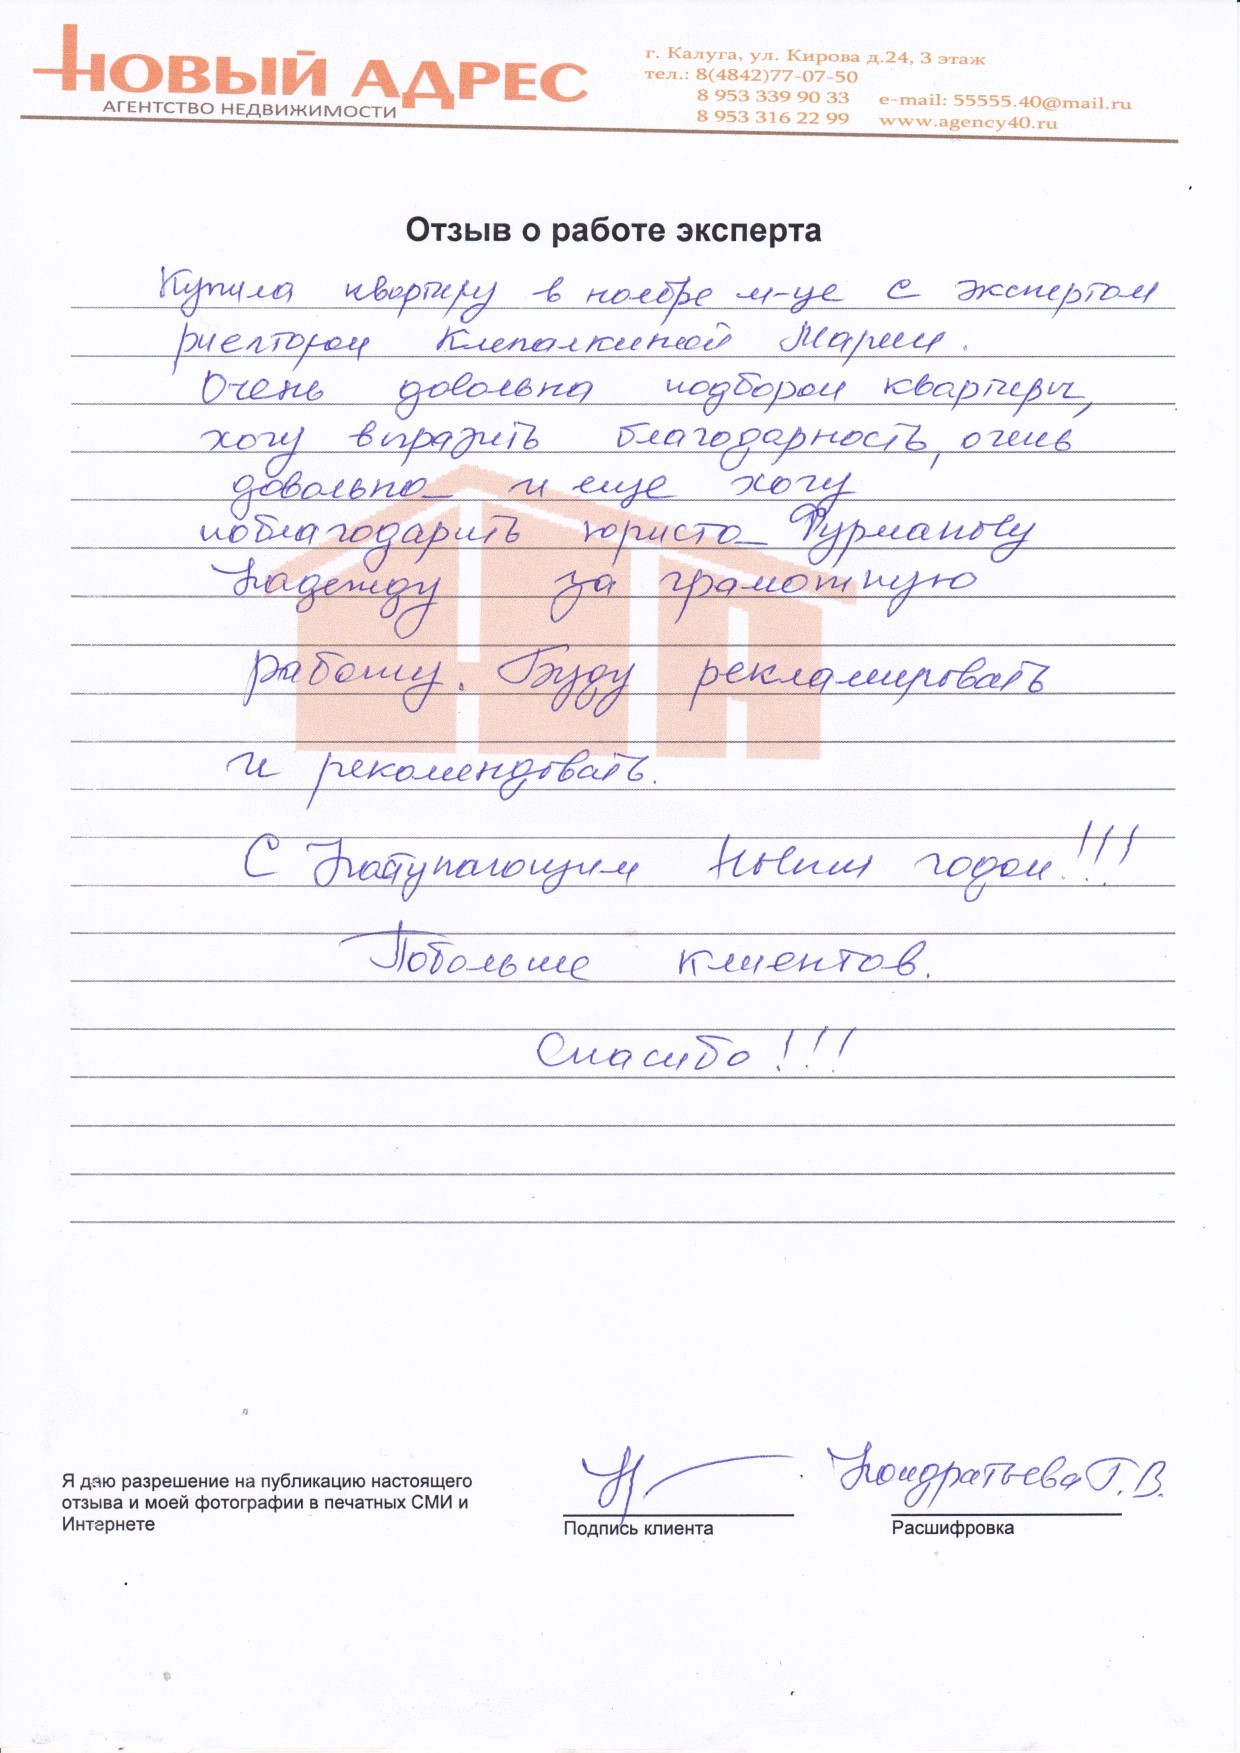 НОВЫЙ АДРЕС
АГЕНТСТВО НЕДВИЖИМОСТИ
г. Калуга, ул. Кирова д.24, 3 этаж
тел.: 8(4842)77-07-50
8 953 339 90 33 e-mail: 55555.40@mail.ru
8 953 316 22 99 www.agency40.ru
Отзыв о работе эксперта
Купила квартиру в ноябре м-це с экспертом
риелтором Клепалкиной Марии.
Очень довольна подбором квартиры,
хочу выразить благодарность, очень
довольна и еще хочу
поблагодарить юриста Фурманову
Надежду за грамотную
работу. Буду рекламировать
и рекомендовать.
С Наступающим Новым годом!!!
Побольше клиентов.
Спасибо!!!
Я даю разрешение на публикацию настоящего
отзыва и моей фотографии в печатных СМИ и
Интернете
Кондратьева Г.В.
Подпись клиента
Расшифровка